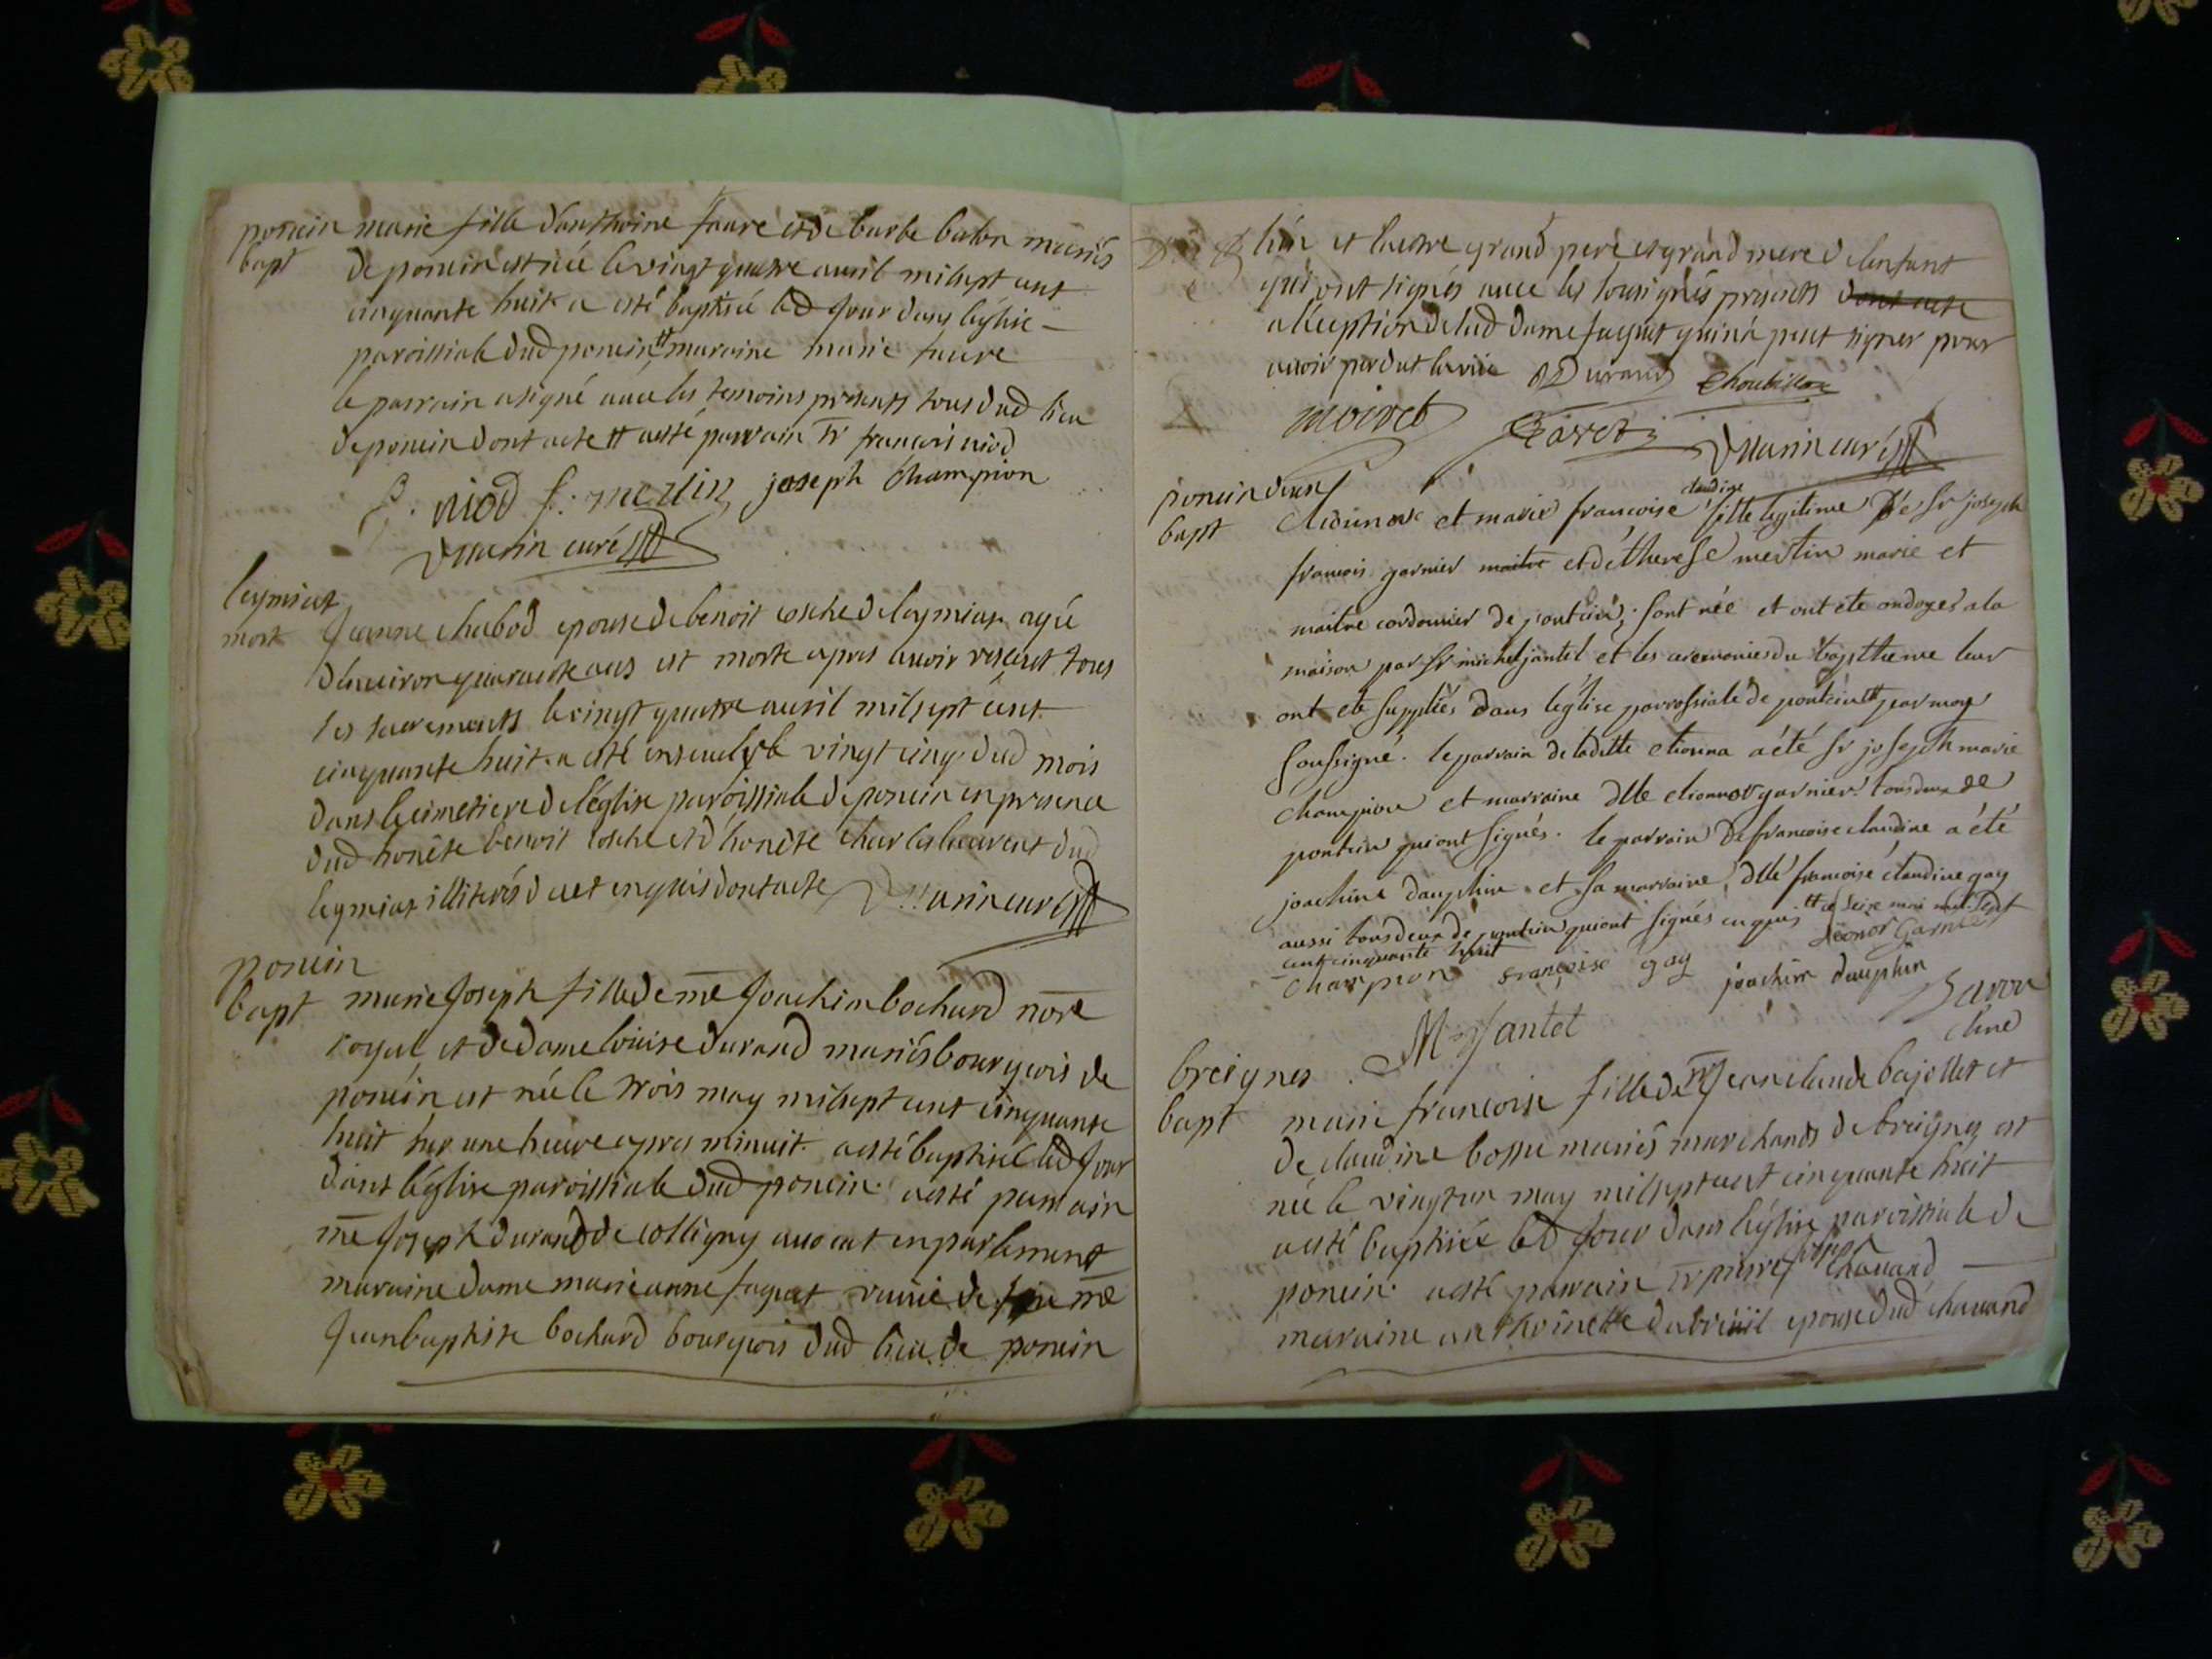 poncin marie fille d'anthoine faure et de barbe babin mariés
bapt de poncin est née le vingt quatre avril mil sept cent
cinquante huit a esté baptisée led jour dans léglise
paroissiale dud poncin # maraine marie faure
le parrain a signé avec les temoins presents tous dud lieu
de poncin dont acte # a esté parrain sr francois niod
niod f: merlin joseph Champion
Marin curé
leymiat
mort Jeanne chabod epouse de benoit cosche de leymiat agée
d'environ quarante ans est morte apres avoir resceut tous
les sacrements le vingt quatre avril mil sept cent
cinquante huit a esté ensevely le vingt cinq dud mois
dans le cimetiere de léglise paroissiale de poncin en presence
dud honête benoit cosche et d'honête Charles dud
leymiat illiterés de ce enquis dont acte Marin curé
poncin
bapt marie Joseph fille de me Joachim bochard nore
royal et de dame louise durand mariés bourgeois de
poncin est née le trois may mil sept cent cinquante
huit sur une heure apres minuit a esté baptisée led jour
dans léglise paroissiale dud poncin a esté parrain
me Joseph durand de colligny avocat en parlement
maraine dame marie anne faguet veuve de feu me
Jean baptiste bochard bourgeois dud lieu de poncin
lun et lautre grand pere et grand mere de lenfant
qui ont signés avec les sousignés presents dont acte
a lexeption de lad dame faguet qui n'a peut signer pour
avoir perdut la vüe Durand Choubillon
moiret
Marin curé
poncin deux
claudine
bapt et marie francoise fille legitime De Sr joseph
francois garnier maitre et de therese merlin marié et
maitre cordonnier de pontcin; sont née et ont ete ondoyes a la
maison par Sr michel jantet et les ceremonies du baptheme leur
ont ete suppliés dans léglise parrossiale de pontcin # par moy
soussigné. le parrain de laditte etionna a été sr joseph marie
Champion et marraine dlle garnier tous deux de
pontcin qui ont signés. le parrain de francoise claudine a été
joachim dauphin et sa marraine dlle francoise claudine gay
aussi tous deux de pontcin qui ont signés enquis # le seize mai mil sept
cent cinquante huit Leonor Garnier
Champion françoise gay joachim dauphin
M Jantet
breignes
bapt marie francoise fille de me Jean claude bajollet et
de claudine bossu mariés marchands de breignes est
née le vingt un may mil sept cent cinquante huit
a esté baptisée led jour dans léglise paroissiale de
poncin a esté parrain sr pierre chavand
maraine anthoinette dubreüil epouse dud chavand